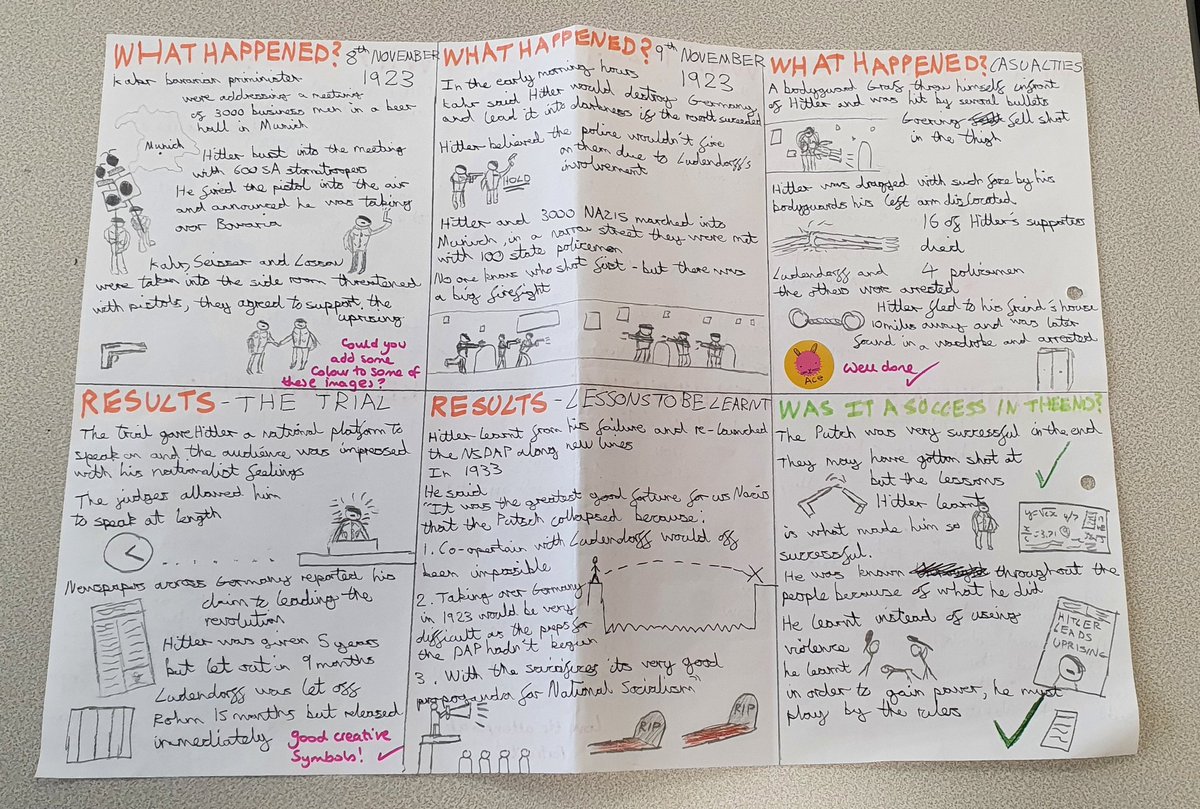 WHAT HAPPENED? 8th NOVEMBER
1923
Kahr bavarian priminister
were addressing a meeting
of 3000 business men in a beer
hall in Munich
Munich
Hitler bust into the meeting
with 600 SA stormtroopers
He fired the pistol into the air
and announced he was taking
over Bavaria
Kahr, Seisser and Lossow
were taken into the side room threatened
with pistols, they agreed to support the
uprising
Could you
add some
Colour to some of
these images?
WHAT HAPPENED? 9th NOVEMBER
1923
In the early morning hours
Kahr said Hitler would destroy Germany
and lead it into darkness if the revolt succeeded
Hitler believed the police wouldn't fire
on them due to Ludendorff's
involvement
HOLD
Hitler and 3000 NAZIS marched into
Munich, in a narrow street they were met
with 100 state policemen
No one knows who shot first - but there was
a big firefight
WHAT HAPPENED? CASUALTIES
A bodyguard Graf threw himself infront
of Hitler and was hit by several bullets
Goering fell shot
in the thigh
Hitler was dragged with such force by his
bodyguards his left arm dislocated
16 of Hitler's supporters
died
Ludendorff and 4 policemen
the others were arrested
Hitler fled to his friend's house
10 miles away and was later
found in a wardrobe and arrested
Ace
Well done
RESULTS - THE TRIAL
The trial gave Hitler a national platform to
speak on and the audience was impressed
with his nationalist feelings
The judges allowed him
to speak at length
Newspapers across Germany reported his
claim to leading the
revolution
Hitler was given 5 years
but let out in 9 months
Ludendorff was let off
Rohm 15 months but released
immediately
good creative
Symbols!
RESULTS - LESSONS TO BE LEARNT
Hitler learnt from his failure and re-launched
the NSDAP along new lines
In 1933
He said
"It was the greatest good fortune for us Nazis
that the Putsch collapsed because:
1. Co-opertain with Ludendorff would off
been impossible
2. Taking over Germany
in 1923 would be very
difficult as the preps for
the DAP hadn't begun
3. With the sacrifices its very good
propoganda for National Socialism"
RIP
RIP
WAS IT A SUCCESS IN THE END?
The Putch was very successful in the end
They may have gotton shot at
but the lessons
Hitler learnt
is what made him so
successful.
He was known throughout the
people because of what he did
He learnt instead of useing
violence
he learnt
in order to gain power, he must
play by the rules
HITLER
LEADS
UPRISING